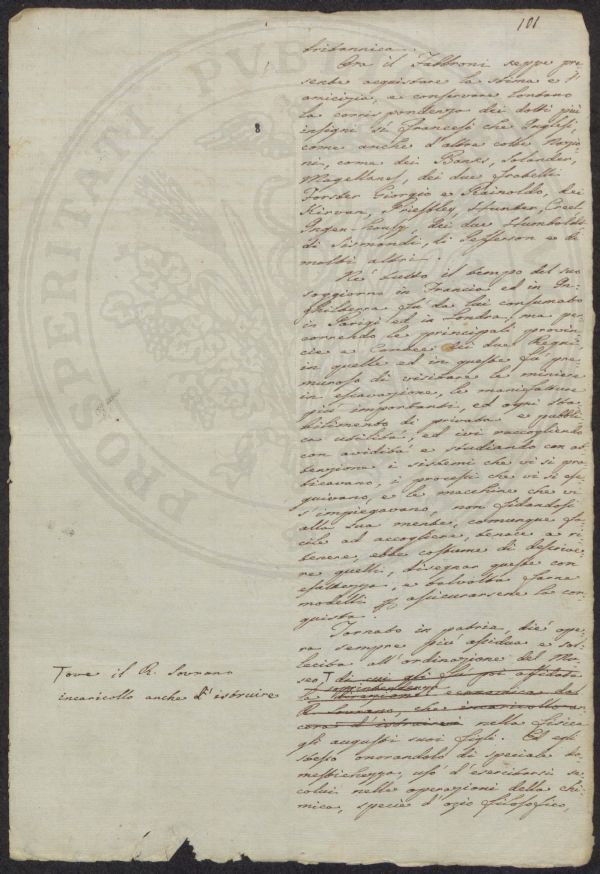 101
britannica.
Ora il Fabbroni seppe pre
sente acquistare la stima e l'
amicizia, e conservare lontano
la corrispondenza dei dotti più
insigni sì Francesi che Inglesi,
come anche d'altre colte Nazio
ni, come dei Banks, Solander,
Magellanes, dei due fratelli
Forster Giorgio e Rainoldo, dei
Kirvan, Priestley, Hunter,
Ingen-houlz, dei due Humboldt
di Sismondi, di Jefferson e di
molti altri.
Nè tutto il tempo del suo
soggiorno in Francia ed in In-
ghilterra fù da lui consumato
in Parigi ed in Londra, ma per
correndo le principali provin
cie e Contee dei due Regni
in quelle ed in queste fù pre
muroso di visitare le miniere
in escavazione, le manifatture
più importanti, ed ogni sta
bilimento di privata e pubbli
ca utilità, ed ivi raccogliendo
con avidità e studiando con at
tenzione i sistemi che vi si pra
ticavano, i processi che vi si ese
guivano, e le macchine che vi
s'impiegavano, non fidandosi
alla sua mente, comunque fa
cile ad accogliere, tenace a ri
tenere, ebbe costume di descrive
re quelli, disegnar queste con
esattezza, e talvolta farne
modelli p assicurarsene la con
quista.
Tornato in patria, diè ope
ra sempre più assidua e sol
lecita all'ordinazione del Mu
seo T da cui gli fu poi affidata
soprintendenza
la direzione economica dal
R. Sovrano, che incaricollo
d'istruire nella fisica
gli augusti suoi figli. Ed egli
stesso onorandolo di speciale do
mestichezza, usò d'esercitarsi se
colui nelle operazioni della chi
mica, specie d'ozio filosofico,
T ove il R. Sovrano
incaricollo anche d'istruire
8
PROSPERITATI PVB